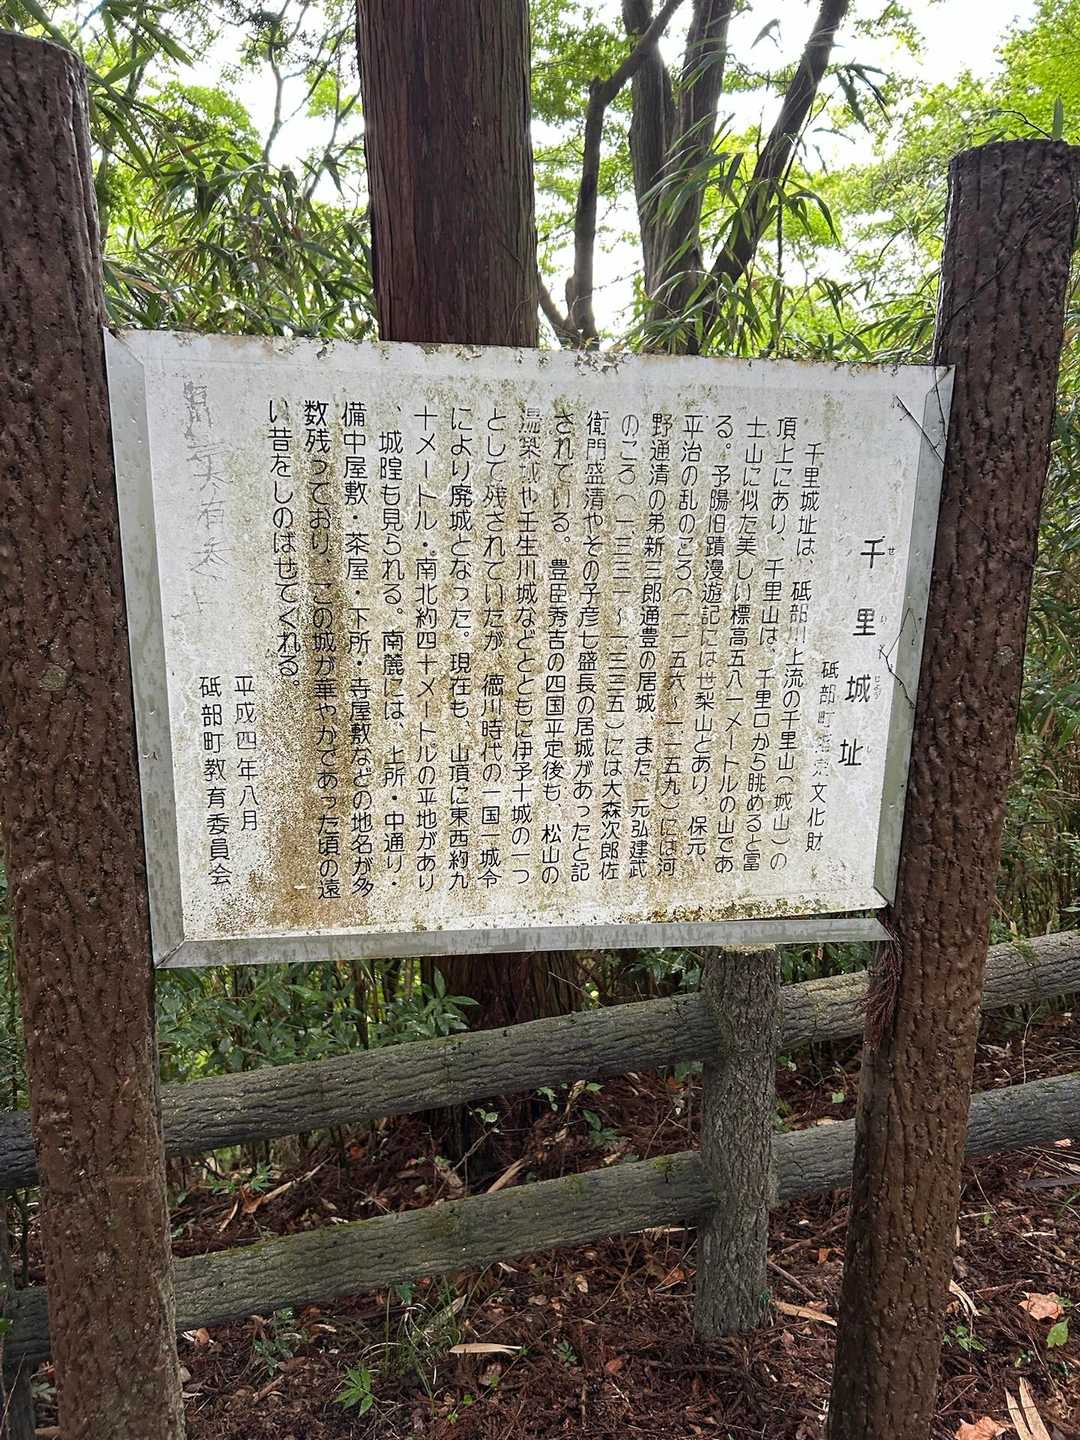 千里城址
せりじょうし
砥部町指定文化財
千里城址は、砥部川上流の千里山(城山)の
頂上にあり、千里山は、千里口から眺めると富
士山に似た美しい標高五八一メートルの山であ
る。予陽旧蹟漫遊記には世梨山とあり、保元、
平治の乱のころ(一一五六～一一五九)には河
野通清の弟新三郎通豊の居城、また、元弘建武
のころ(一三三一～一三三五)には大森次郎佐
衛門盛清やその子彦七盛長の居城があったと記
されている。豊臣秀吉の四国平定後も、松山の
湯築城や壬生川城などとともに伊予十城の一つ
として残されていたが、徳川時代の一国一城令
により廃城となった。現在も、山頂に東西約九
十メートル・南北約四十メートルの平地があり
、城隍も見られる。南麓には、上所・中通り・
備中屋敷・茶屋・下所・寺屋敷などの地名が多
数残っており、この城が華やかであった頃の遠
い昔をしのばせてくれる。
平成四年八月
砥部町教育委員会